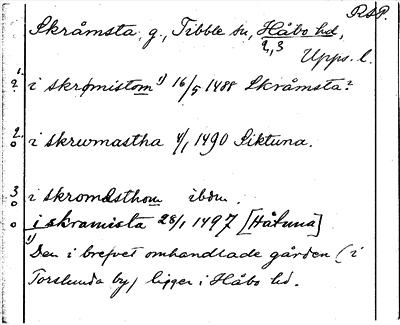 RAP.
Skråmsta, g., Tibble sn, Håbo hd,
2,3
Upps. l.
1. i skrømistom 1) 16/5 1488 Skråmsta?
2. i skrumastha 4/1 1490 Siktuna.
3 i skromdsthom ibdm.
i skramista 28/1 1497 [Håtuna]
1) Den i brefvet omhandlade gården (i
Torslunda by) ligger i Håbo hd.